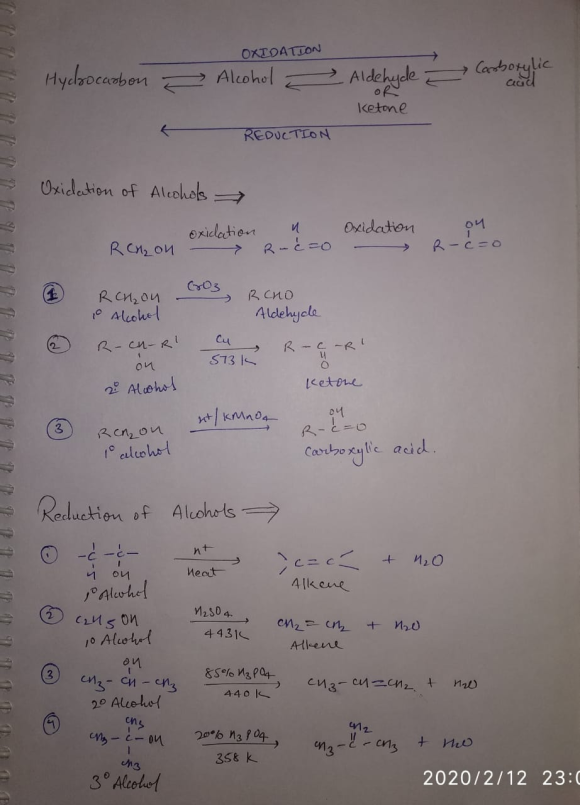 OXIDATION
Hydrocarbon ⇌ Alcohol ⇌ Aldehyde ⇌ Carboxylic acid
OR
Ketone
REDUCTION
Oxidation of Alcohols ⇒
RCH₂OH oxidation → R-C=O Oxidation → R-C=O
H
OH
① RCH₂OH CrO₃ → RCHO
1° Alcohol Aldehyde
② R-CH-R' Cu → R-C-R'
OH 573 K O
2° Alcohol Ketone
OH
③ RCH₂OH H⁺/KMnO₄ → R-C=O
1° alcohol Carboxylic acid.
Reduction of Alcohols ⇒
① -C-C- H⁺ → C=C + H₂O
H OH Heat
1° Alcohol Alkene
② C₂H₅OH H₂SO₄ → CH₂=CH₂ + H₂O
1° Alcohol 443K Alkene
OH
③ CH₃-CH-CH₃ 85% H₃PO₄ → CH₃-CH=CH₂ + H₂O
2° Alcohol 440 K
CH₃ CH₂
④ CH₃-C-OH 20% H₃PO₄ → CH₃-C-CH₃ + H₂O
CH₃ 358 K
3° Alcohol
2020/2/12 23:0